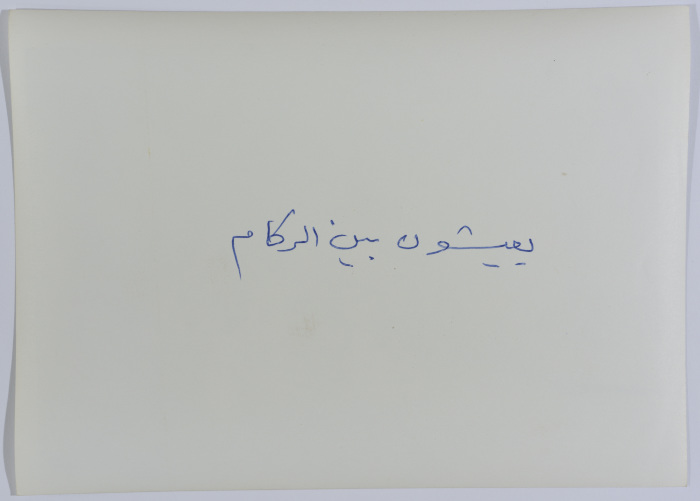 يعيشون بين الركام